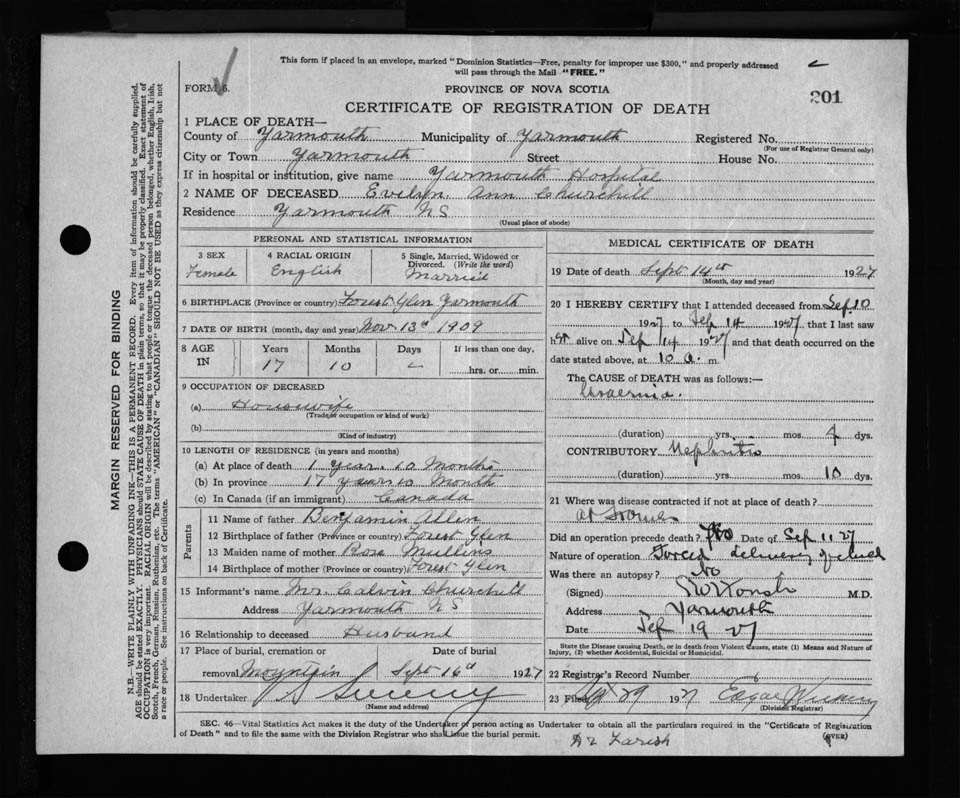 This form if placed in an envelope, marked "Dominion Statistics—Free, penalty for improper use $300," and properly addressed
will pass through the Mail "FREE."
FORM 6.
PROVINCE OF NOVA SCOTIA
CERTIFICATE OF REGISTRATION OF DEATH
201
1 PLACE OF DEATH—
County of Yarmouth Municipality of Yarmouth Registered No.
(For use of Registrar General only)
City or Town Yarmouth Street House No.
If in hospital or institution, give name Yarmouth Hospital
2 NAME OF DECEASED Evelyn Ann Churchill
Residence Yarmouth NS
(Usual place of abode)
PERSONAL AND STATISTICAL INFORMATION
3 SEX Female
4 RACIAL ORIGIN English
5 Single, Married, Widowed or Divorced. (Write the word) Married
6 BIRTHPLACE (Province or country) Forest Glen Yarmouth
7 DATE OF BIRTH (month, day and year) Nov 13th 1909
8 AGE IN Years Months Days If less than one day,
17 10 – hrs. or min.
9 OCCUPATION OF DECEASED
(a) Housewife
(Trade or occupation or kind of work)
(b)
(Kind of industry)
10 LENGTH OF RESIDENCE (in years and months)
(a) At place of death 1 year 10 Months
(b) In province 17 years 10 Month
(c) In Canada (if an immigrant) Canada
Parents
11 Name of father Benjamin Allen
12 Birthplace of father (Province or country) Forest Glen
13 Maiden name of mother Rose Mullins
14 Birthplace of mother (Province or country) Forest Glen
15 Informant's name Mr. Calvin Churchill
Address Yarmouth NS
16 Relationship to deceased Husband
17 Place of burial, cremation or Date of burial
removal Mountain Sept 16th 1927
18 Undertaker Sweeny
(Name and address)
MEDICAL CERTIFICATE OF DEATH
19 Date of death Sept 14th 1927
(Month, day and year)
20 I HEREBY CERTIFY that I attended deceased from Sep 10
1927 to Sep 14 1927 that I last saw
her alive on Sep 14 1927 and that death occurred on the
date stated above, at 10 a. m.
The CAUSE OF DEATH was as follows:—
Uraemia.
(duration) yrs. mos. 4 dys.
CONTRIBUTORY Nephritis
(duration) yrs. mos. 10 dys.
21 Where was disease contracted if not at place of death?
at Home
Did an operation precede death? Date of Sep 11 27
Nature of operation Forced delivery
Was there an autopsy? No
(Signed) M.D.
Address Yarmouth
Date Sep 19 27
State the Disease causing Death, or in death from Violent Causes, state (1) Means and Nature of
Injury, (2) whether Accidental, Suicidal or Homicidal.
22 Registrar's Record Number
23 Filed 29 1927 Edgar
(Division Registrar)
SEC. 46—Vital Statistics Act makes it the duty of the Undertaker or person acting as Undertaker to obtain all the particulars required in the "Certificate of Registration
of Death" and to file the same with the Division Registrar who shall issue the burial permit. (OVER)
Dr Farish
MARGIN RESERVED FOR BINDING
N.B.—WRITE PLAINLY WITH UNFADING INK—THIS IS A PERMANENT RECORD. Every item of information should be carefully supplied.
AGE should be stated EXACTLY. PHYSICIANS should STATE CAUSE OF DEATH in plain terms, so that it may be properly classified. Exact statement of
OCCUPATION is very important. RACIAL ORIGIN will be described by stating to what people or tongue the deceased person belonged, whether English, Irish,
Scotch, French, German, Russian, Ruthenian, etc. The terms "AMERICAN" or "CANADIAN" SHOULD NOT BE USED as they express citizenship but not
a race or people. See instructions on back of Certificate.